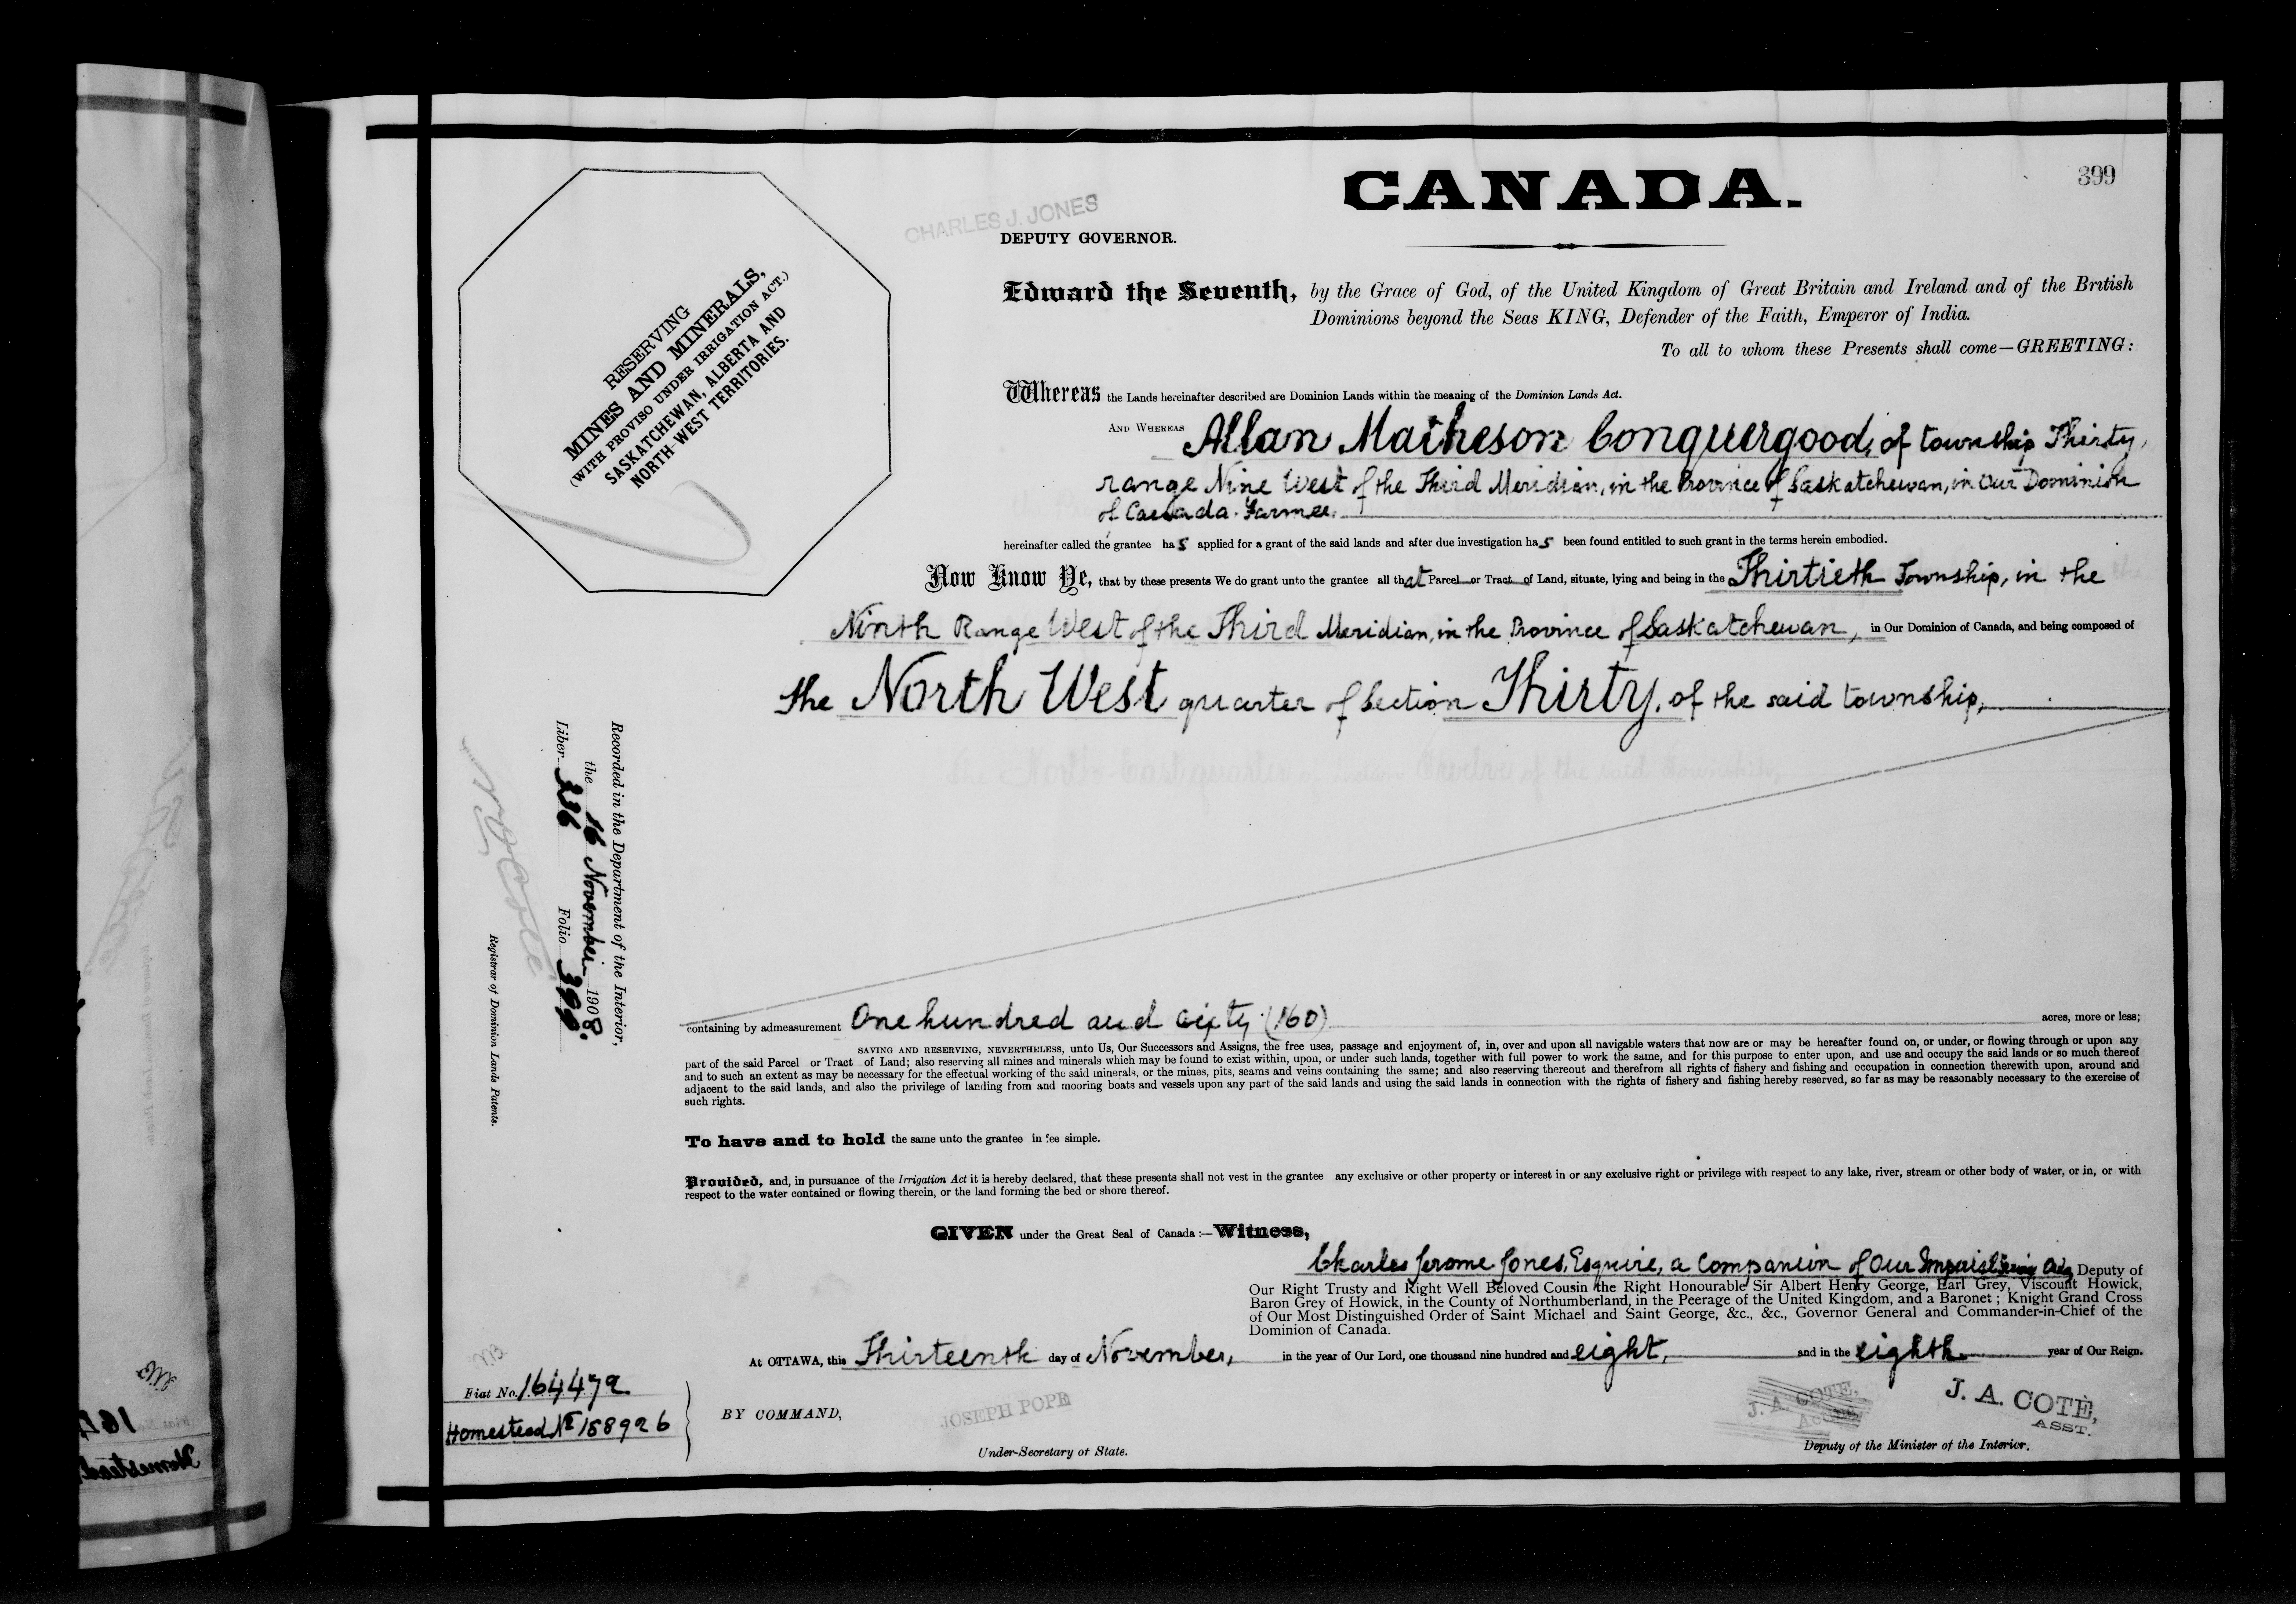 CANADA.
399
CHARLES J. JONES
DEPUTY GOVERNOR.
RESERVING
MINES AND MINERALS,
(WITH PROVISO UNDER IRRIGATION ACT.)
SASKATCHEWAN, ALBERTA AND
NORTH-WEST TERRITORIES.
Edward the Seventh, by the Grace of God, of the United Kingdom of Great Britain and Ireland and of the British
Dominions beyond the Seas KING, Defender of the Faith, Emperor of India.
To all to whom these Presents shall come—GREETING:
Whereas the Lands hereinafter described are Dominion Lands within the meaning of the Dominion Lands Act.
AND WHEREAS Allan Matheson Conquergood, of township Thirty,
range Nine West of the Third Meridian, in the Province of Saskatchewan, in Our Dominion
of Canada. Farmer.
hereinafter called the grantee has applied for a grant of the said lands and after due investigation has been found entitled to such grant in the terms herein embodied.
Now Know Ye, that by these presents We do grant unto the grantee all that Parcel or Tract of Land, situate, lying and being in the Thirtieth Township, in the
Ninth Range West of the Third Meridian, in the Province of Saskatchewan, in Our Dominion of Canada, and being composed of
the North West quarter of Section Thirty, of the said township,
Recorded in the Department of the Interior,
the 16 November 1908.
Liber 236 Folio 399
Registrar of Dominion Lands Patents.
containing by admeasurement One hundred and sixty (160) acres, more or less;
SAVING AND RESERVING, NEVERTHELESS, unto Us, Our Successors and Assigns, the free uses, passage and enjoyment of, in, over and upon all navigable waters that now are or may be hereafter found on, or under, or flowing through or upon any
part of the said Parcel or Tract of Land; also reserving all mines and minerals which may be found to exist within, upon, or under such lands, together with full power to work the same, and for this purpose to enter upon, and use and occupy the said lands or so much thereof
and to such an extent as may be necessary for the effectual working of the said minerals, or the mines, pits, seams and veins containing the same; and also reserving thereout and therefrom all rights of fishery and fishing and occupation in connection therewith upon, around and
adjacent to the said lands, and also the privilege of landing from and mooring boats and vessels upon any part of the said lands and using the said lands in connection with the rights of fishery and fishing hereby reserved, so far as may be reasonably necessary to the exercise of
such rights.
To have and to hold the same unto the grantee in fee simple.
Provided, and, in pursuance of the Irrigation Act it is hereby declared, that these presents shall not vest in the grantee any exclusive or other property or interest in or any exclusive right or privilege with respect to any lake, river, stream or other body of water, or in, or with
respect to the water contained or flowing therein, or the land forming the bed or shore thereof.
GIVEN under the Great Seal of Canada:—Witness,
Charles Jerome Jones, Esquire, a Companion of Our Imperial Deputy of
Our Right Trusty and Right Well Beloved Cousin the Right Honourable Sir Albert Henry George, Earl Grey, Viscount Howick,
Baron Grey of Howick, in the County of Northumberland, in the Peerage of the United Kingdom, and a Baronet; Knight Grand Cross
of Our Most Distinguished Order of Saint Michael and Saint George, &c., &c., Governor General and Commander-in-Chief of the
Dominion of Canada.
At OTTAWA, this Thirteenth day of November, in the year of Our Lord, one thousand nine hundred and eight, and in the eighth year of Our Reign.
Fiat No. 164472
Homestead No 158926
BY COMMAND,
JOSEPH POPE
Under-Secretary of State.
J. A. COTE,
J. A. COTÈ,
ASST.
Deputy of the Minister of the Interior.